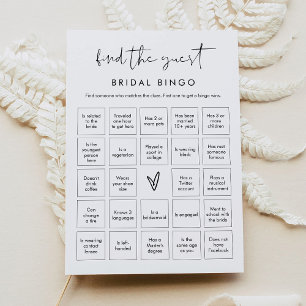 find the guest
BRIDAL BINGO
Find someone who matches the clues. First one to get a bingo wins.
Is related to
the bride
Traveled one
hour to get here
Has 2 or
more pets
Has been
married
10+ years
Has 3 or
more
children
Is the
youngest
person
here
Is a
vegetarian
Played a
sport in
college
Is wearing
black
Has met
someone
famous
Doesn't
drink
coffee
Wears your
shoe size
Has a
Twitter
account
Plays a
musical
instrument
Can
change a
tire
Knows 3
languages
Is a
bridesmaid
Is engaged
Went to
school with
the bride
Is wearing
contact
lenses
Is left-
handed
Has a
Master's
degree
Is the
same age
as you
Does not
have
Facebook